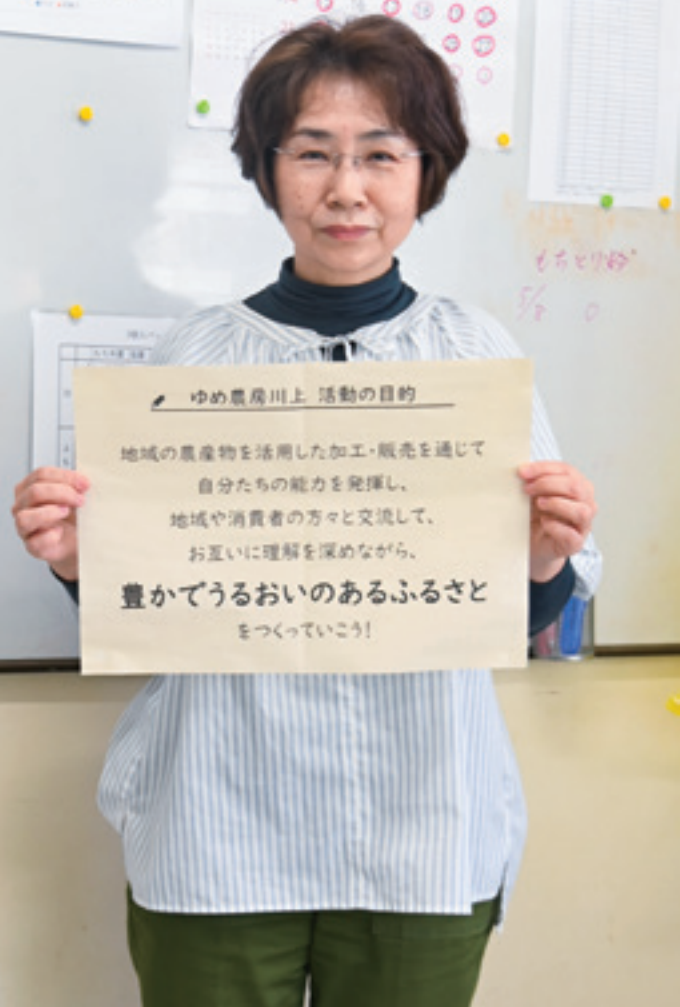 もちとり粉
5/8 0
ゆめ農房川上 活動の目的
地域の農産物を活用した加工・販売を通じて
自分たちの能力を発揮し、
地域や消費者の方々と交流して、
お互いに理解を深めながら、
豊かでうるおいのあるふるさと
をつくっていこう!